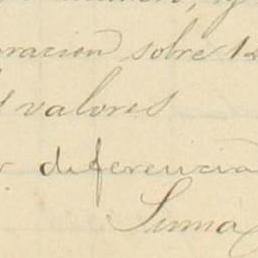 racion sobre 12
valores
r diferencia
Suma